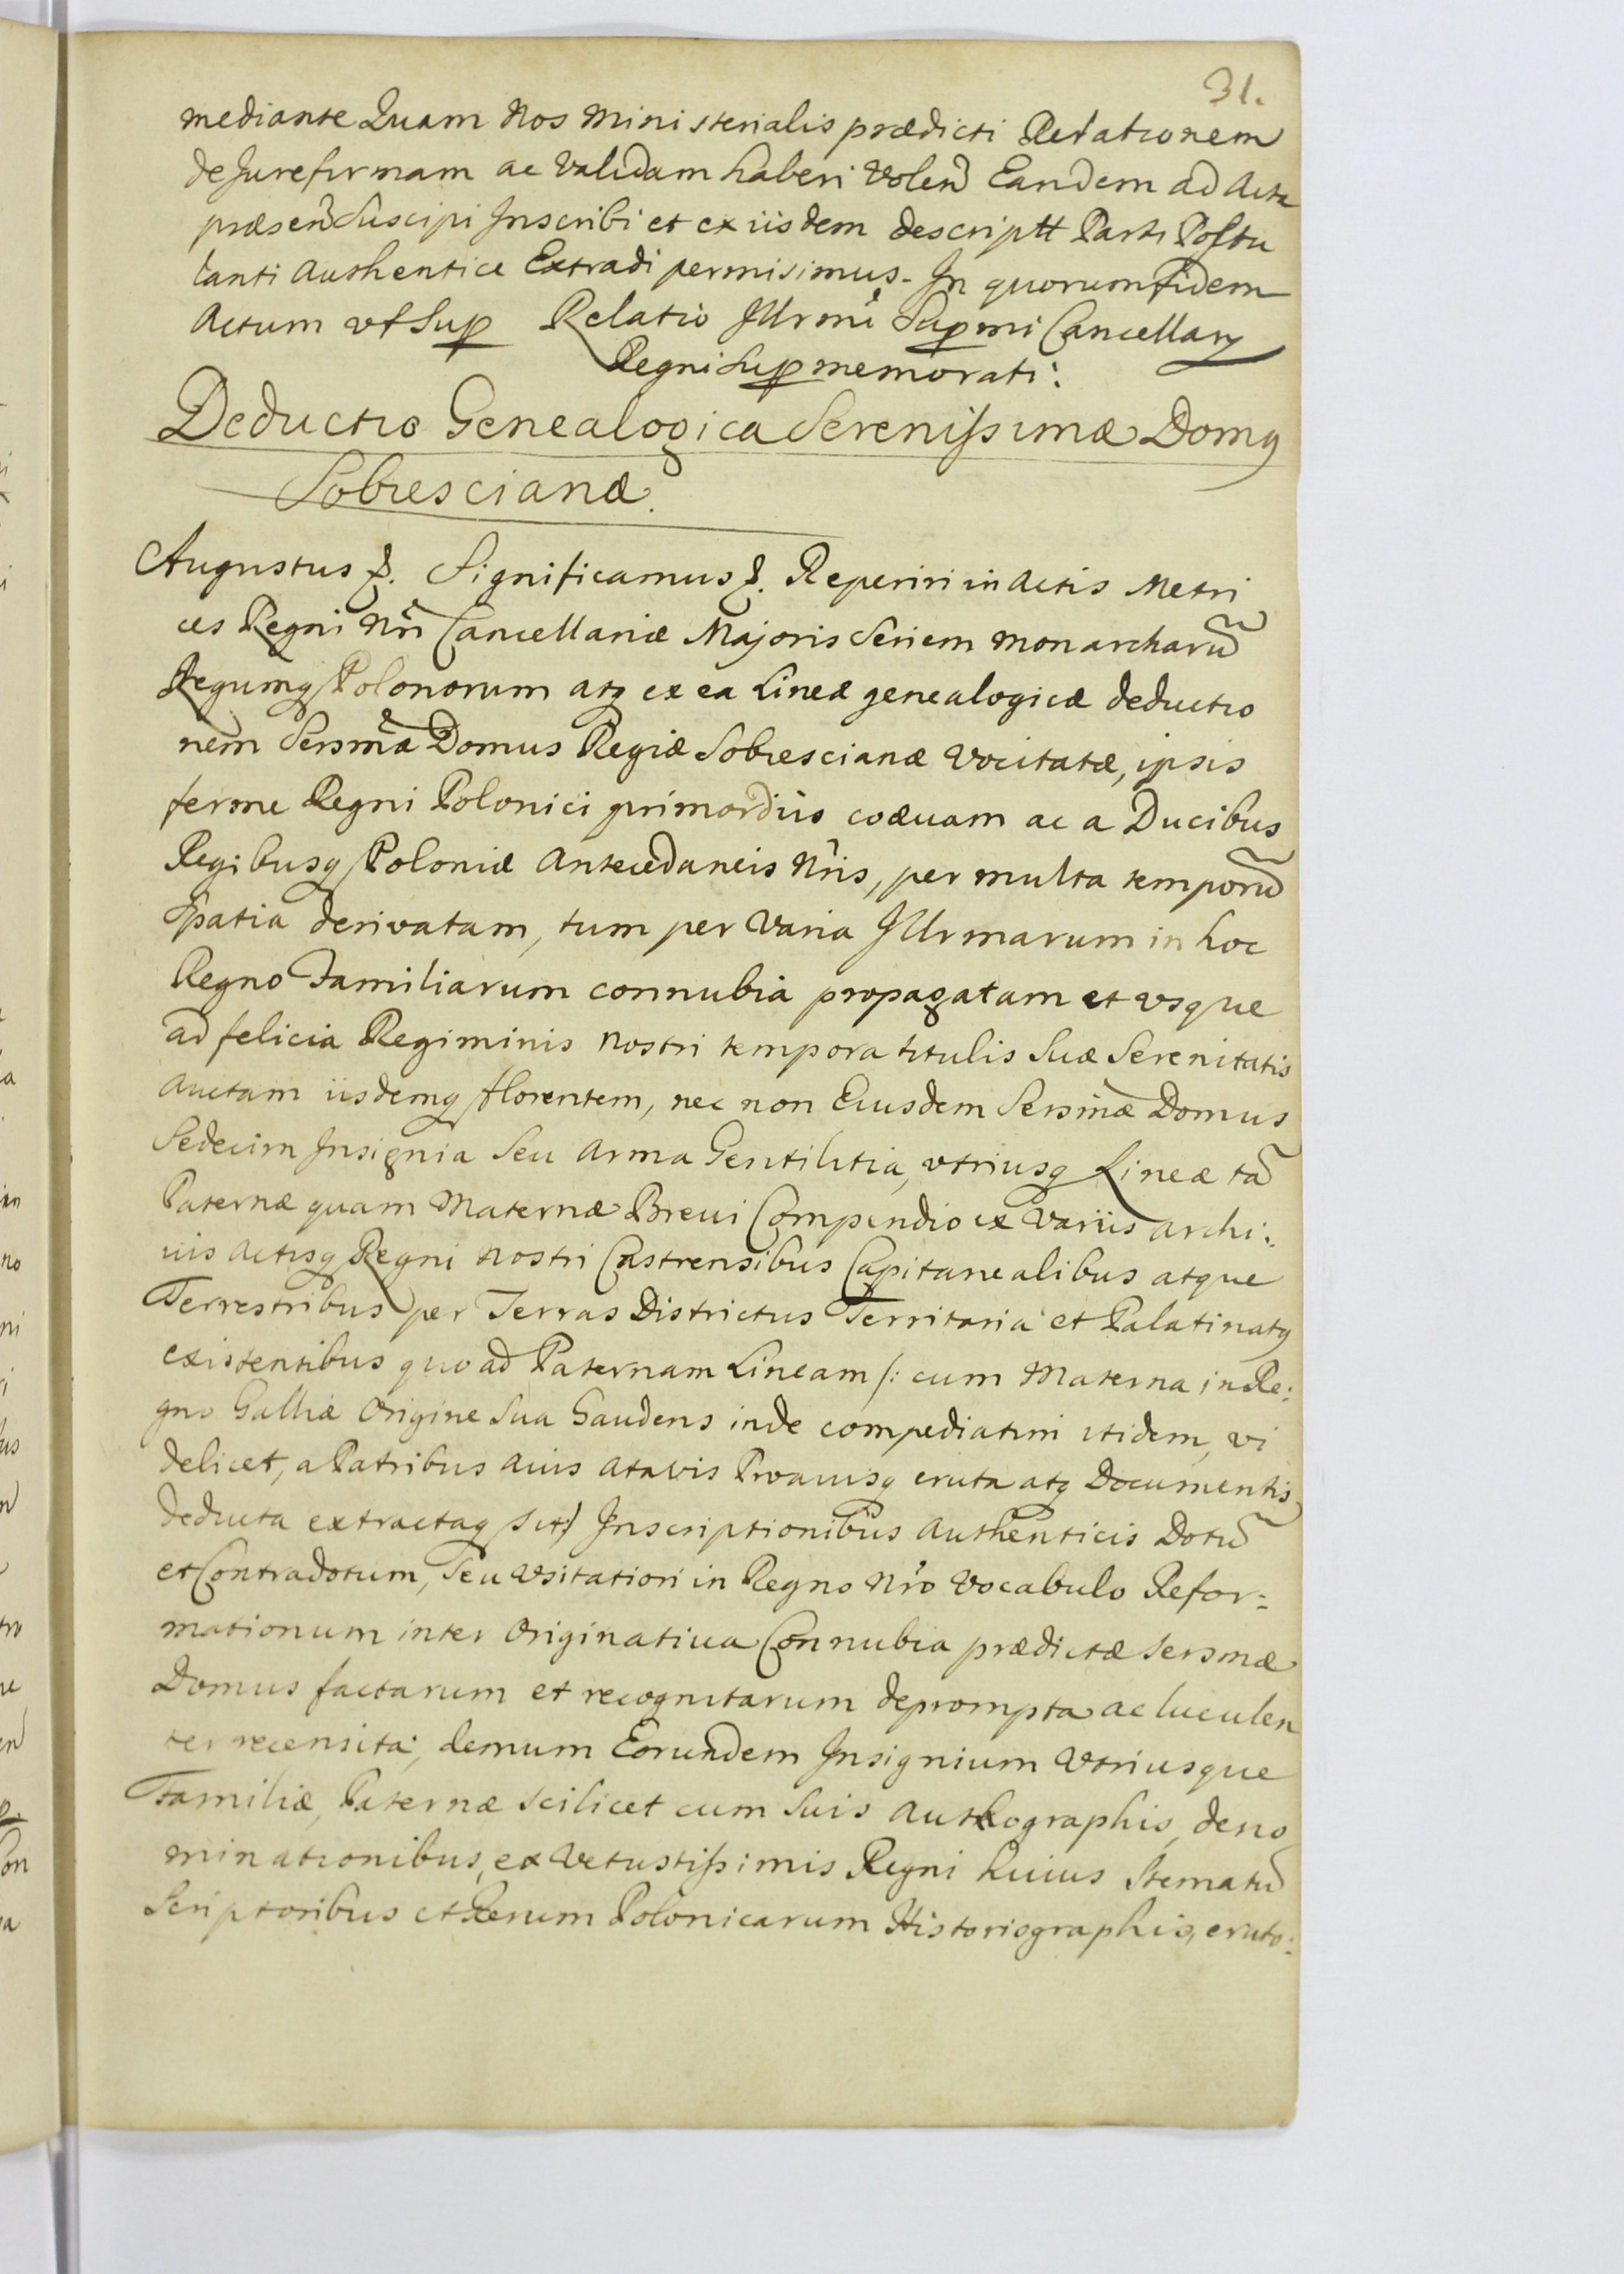 31.
mediante Quam Nos Ministerialis prædicti Relationem
de Jure firmam ac Validam haberi Volen̄ Eandem ad Acta
præsen̄ Suscipi Inscribi et ex iisdem descriptt Parti Postu
lanti Authentice Extradi permisimus. In quorum fidem
Actum vt Sup Relatio Illrmi Supmi Cancellarÿ
Regni Sup memorati:
Deductio Genealogica Serenissimæ Domq
Sobiescianæ.
Augustus &. Significamus &. Reperiri in Actis Metri
ces Regni Nri Cancellariæ Majoris Seriem Monarcharū
Regumq Polonorum atq ex ea Lineæ genealogicæ deductio
nem Sersmæ Domus Regiæ Sobiescianæ Vocitatæ, ipsis
ferme Regni Polonici primordiis coæuam ac a Ducibus
Regibusq Poloniæ Antecedaneis Nris, per multa temporū
Spatia derivatam, tum per Varia Illrmarum in hoc
Regno Familiarum connubia propagatam et vsque
ad felicia Regiminis Nostri tempora titulis Suæ Serenitatis
Auctam iisdemq florentem, nec non Eiusdem Sersmæ Domus
Sedecim Insignia Seu Arma Gentilitia, vtriusq Lineæ tā
Paternæ quam Maternæ Breui Compendio ex Variis Archi:
uis Actisq Regni Nostri Castrensibus Capitanealibus atque
Terrestribus per Terras Districtus Territoria et Palatinatq
existentibus quo ad Paternam Lineam /: cum Materna in Re:
gno Galliæ Origine Sua Gaudens inde compediatim itidem, vi
delicet, a Patribus Auis Atavis Proauisq eruta atq Documentis
deducta extractaq sit:/ Inscriptionibus Authenticis Dotū
et Contradotum, Seu Vsitatiori in Regno Nro Vocabulo Refor:
mationum inter Originatiua Connubia prædictæ Sersmæ
Domus factarum et recognitarum deprompta ac luculen
ter recensita, demum Eorundem Insignium Vtriusque
Familiæ, Paternæ scilicet cum Suis Authographis, deno
minationibus, ex Vetustissimis Regni huius Stematū
Scriptoribus et Rerum Polonicarum Historiographis, eruto: